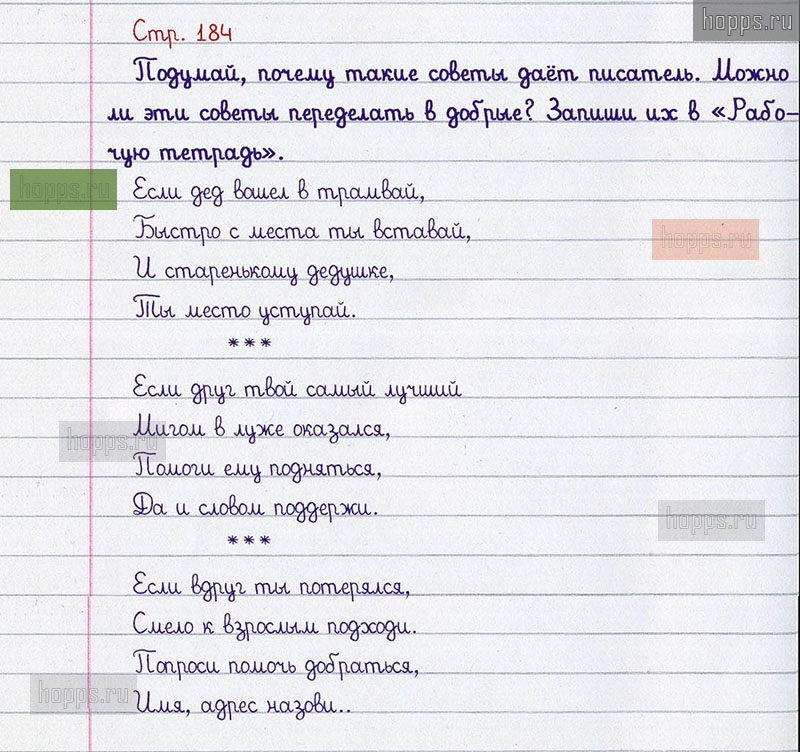 hopps.ru
Стр. 184
Подумай, почему такие советы даёт писатель. Можно
ли эти советы переделать в добрые? Запиши их в «Рабо-
чую тетрадь».
hopps.ru
Если дед вошел в трамвай,
Быстро с места ты вставай,
hopps.ru
И старенькому дедушке,
Ты место уступай.
***
Если друг твой самый лучший
Мигом в луже оказался,
hopps.ru
Помоги ему подняться,
Да и словом поддержи.
hopps.ru
***
Если вдруг ты потерялся,
Смело к взрослым подходи.
Попроси помочь добраться,
hopps.ru
Имя, адрес назови..